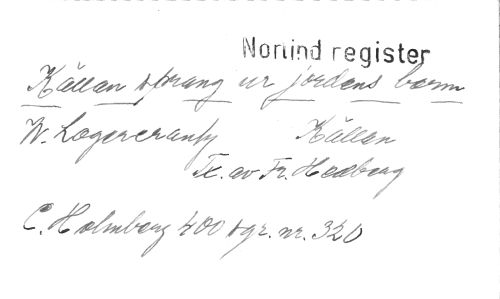 Nomind register
Källan sprang ur jordens barm
W. Lagercrantz Källan
Tx. av Fr. Hedberg
C. Holmberg 400 sgr. nr. 320